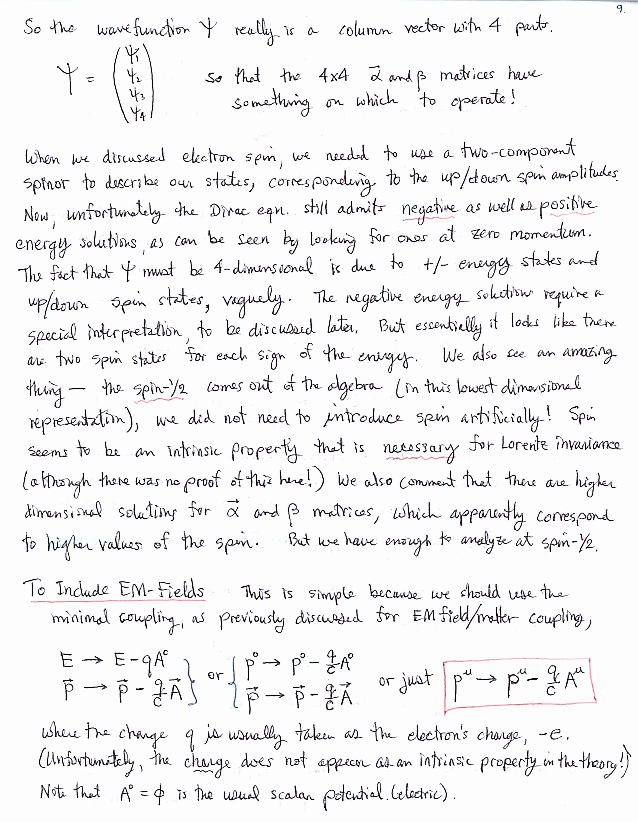 9.
So the wavefunction Ψ really is a column vector with 4 parts.
Ψ = (ψ₁ ψ₂ ψ₃ ψ₄) so that the 4x4 α⃗ and β matrices have
something on which to operate!
When we discussed electron spin, we needed to use a two-component
spinor to describe our states, corresponding to the up/down spin amplitudes
Now, unfortunately the Dirac eqn. still admits negative as well as positive
energy solutions, as can be seen by looking for ones at zero momentum.
The fact that Ψ must be 4-dimensional is due to +/- energy states and
up/down spin states, vaguely. The negative energy solutions require a
special interpretation, to be discussed later. But essentially it looks like there
are two spin states for each sign of the energy. We also see an amazing
thing — the spin-1/2 comes out of the algebra (in this lowest dimensional
representation), we did not need to introduce spin artificially! Spin
seems to be an intrinsic property that is necessary for Lorentz invariance
(although there was no proof of this here!) We also comment that there are higher
dimensional solutions for α⃗ and β matrices, which apparently correspond
to higher values of the spin. But we have enough to analyze at spin-1/2.
To Include EM-Fields This is simple because we should use the
minimal coupling, as previously discussed for EM field/matter coupling,
E → E - qA⁰ } or { p⁰ → p⁰ - q/c A⁰
p⃗ → p⃗ - q/c A⃗ } or { p⃗ → p⃗ - q/c A⃗ or just p^μ → p^μ - q/c A^μ
where the charge q is usually taken as the electron's charge, -e.
(Unfortunately, the charge does not appear as an intrinsic property in the theory!)
Note that A⁰ = φ is the usual scalar potential. (electric).